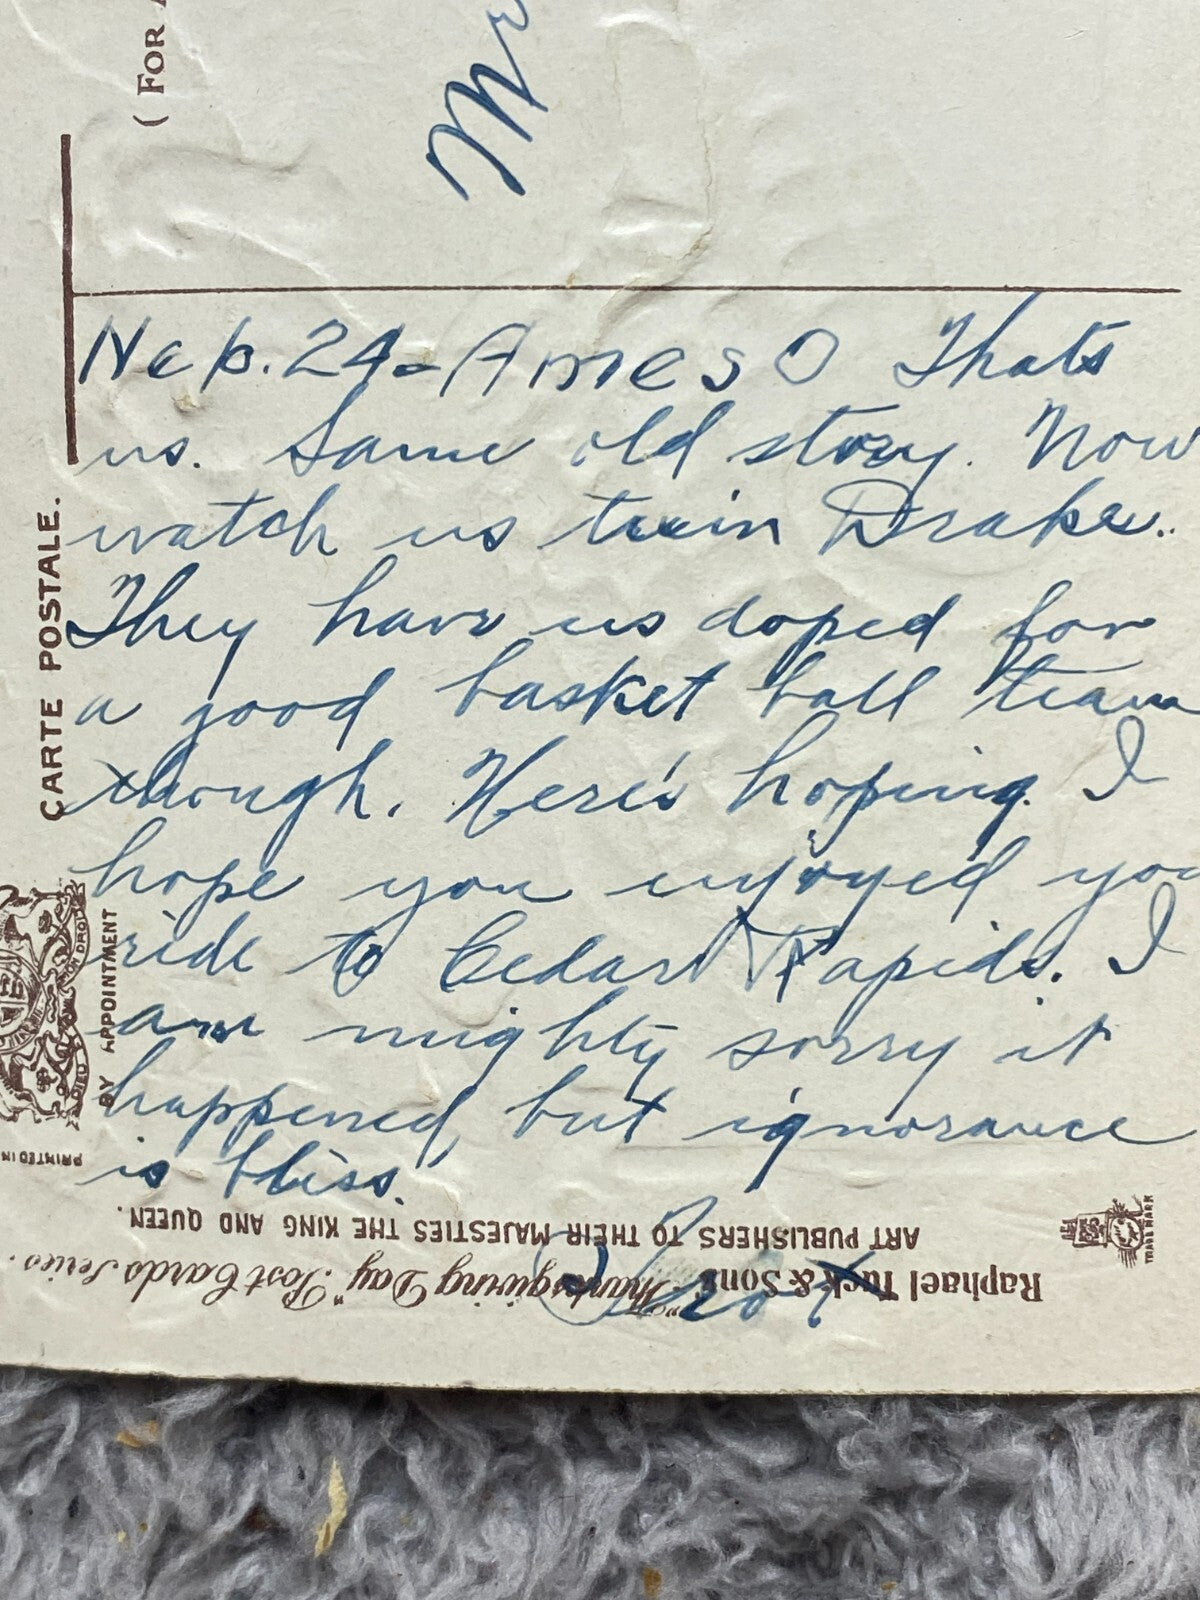 (FOR
Mr
Neb. 24 - Ames 0 Thats
us. Same old story. Now
watch us trim Drake.
They have us doped for
a good basket ball team
though. Here's hoping. I
hope you enjoyed you
ride to Cedar Rapids. I
am mighty sorry it
happened, but ignorance
is bliss.
CARTE POSTALE.
BY APPOINTMENT
PRINTED IN
ART PUBLISHERS TO THEIR MAJESTIES THE KING AND QUEEN.
Raphael Tuck & Sons' "Thanksgiving Day" Post Cards Series.
TRADE MARK